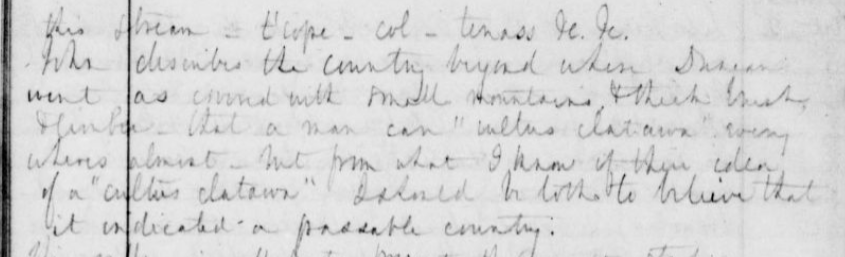 this stream - t'cope - col - tenass &c. &c.
John describes the country beyond where Duncan
went as covered with small mountains, & thick brush,
& timber - that a man can "cultus clatawa" every
where almost - but from what I know of their idea
of a "cultus clatawa" I should be loth to believe that
it indicated a passable country.